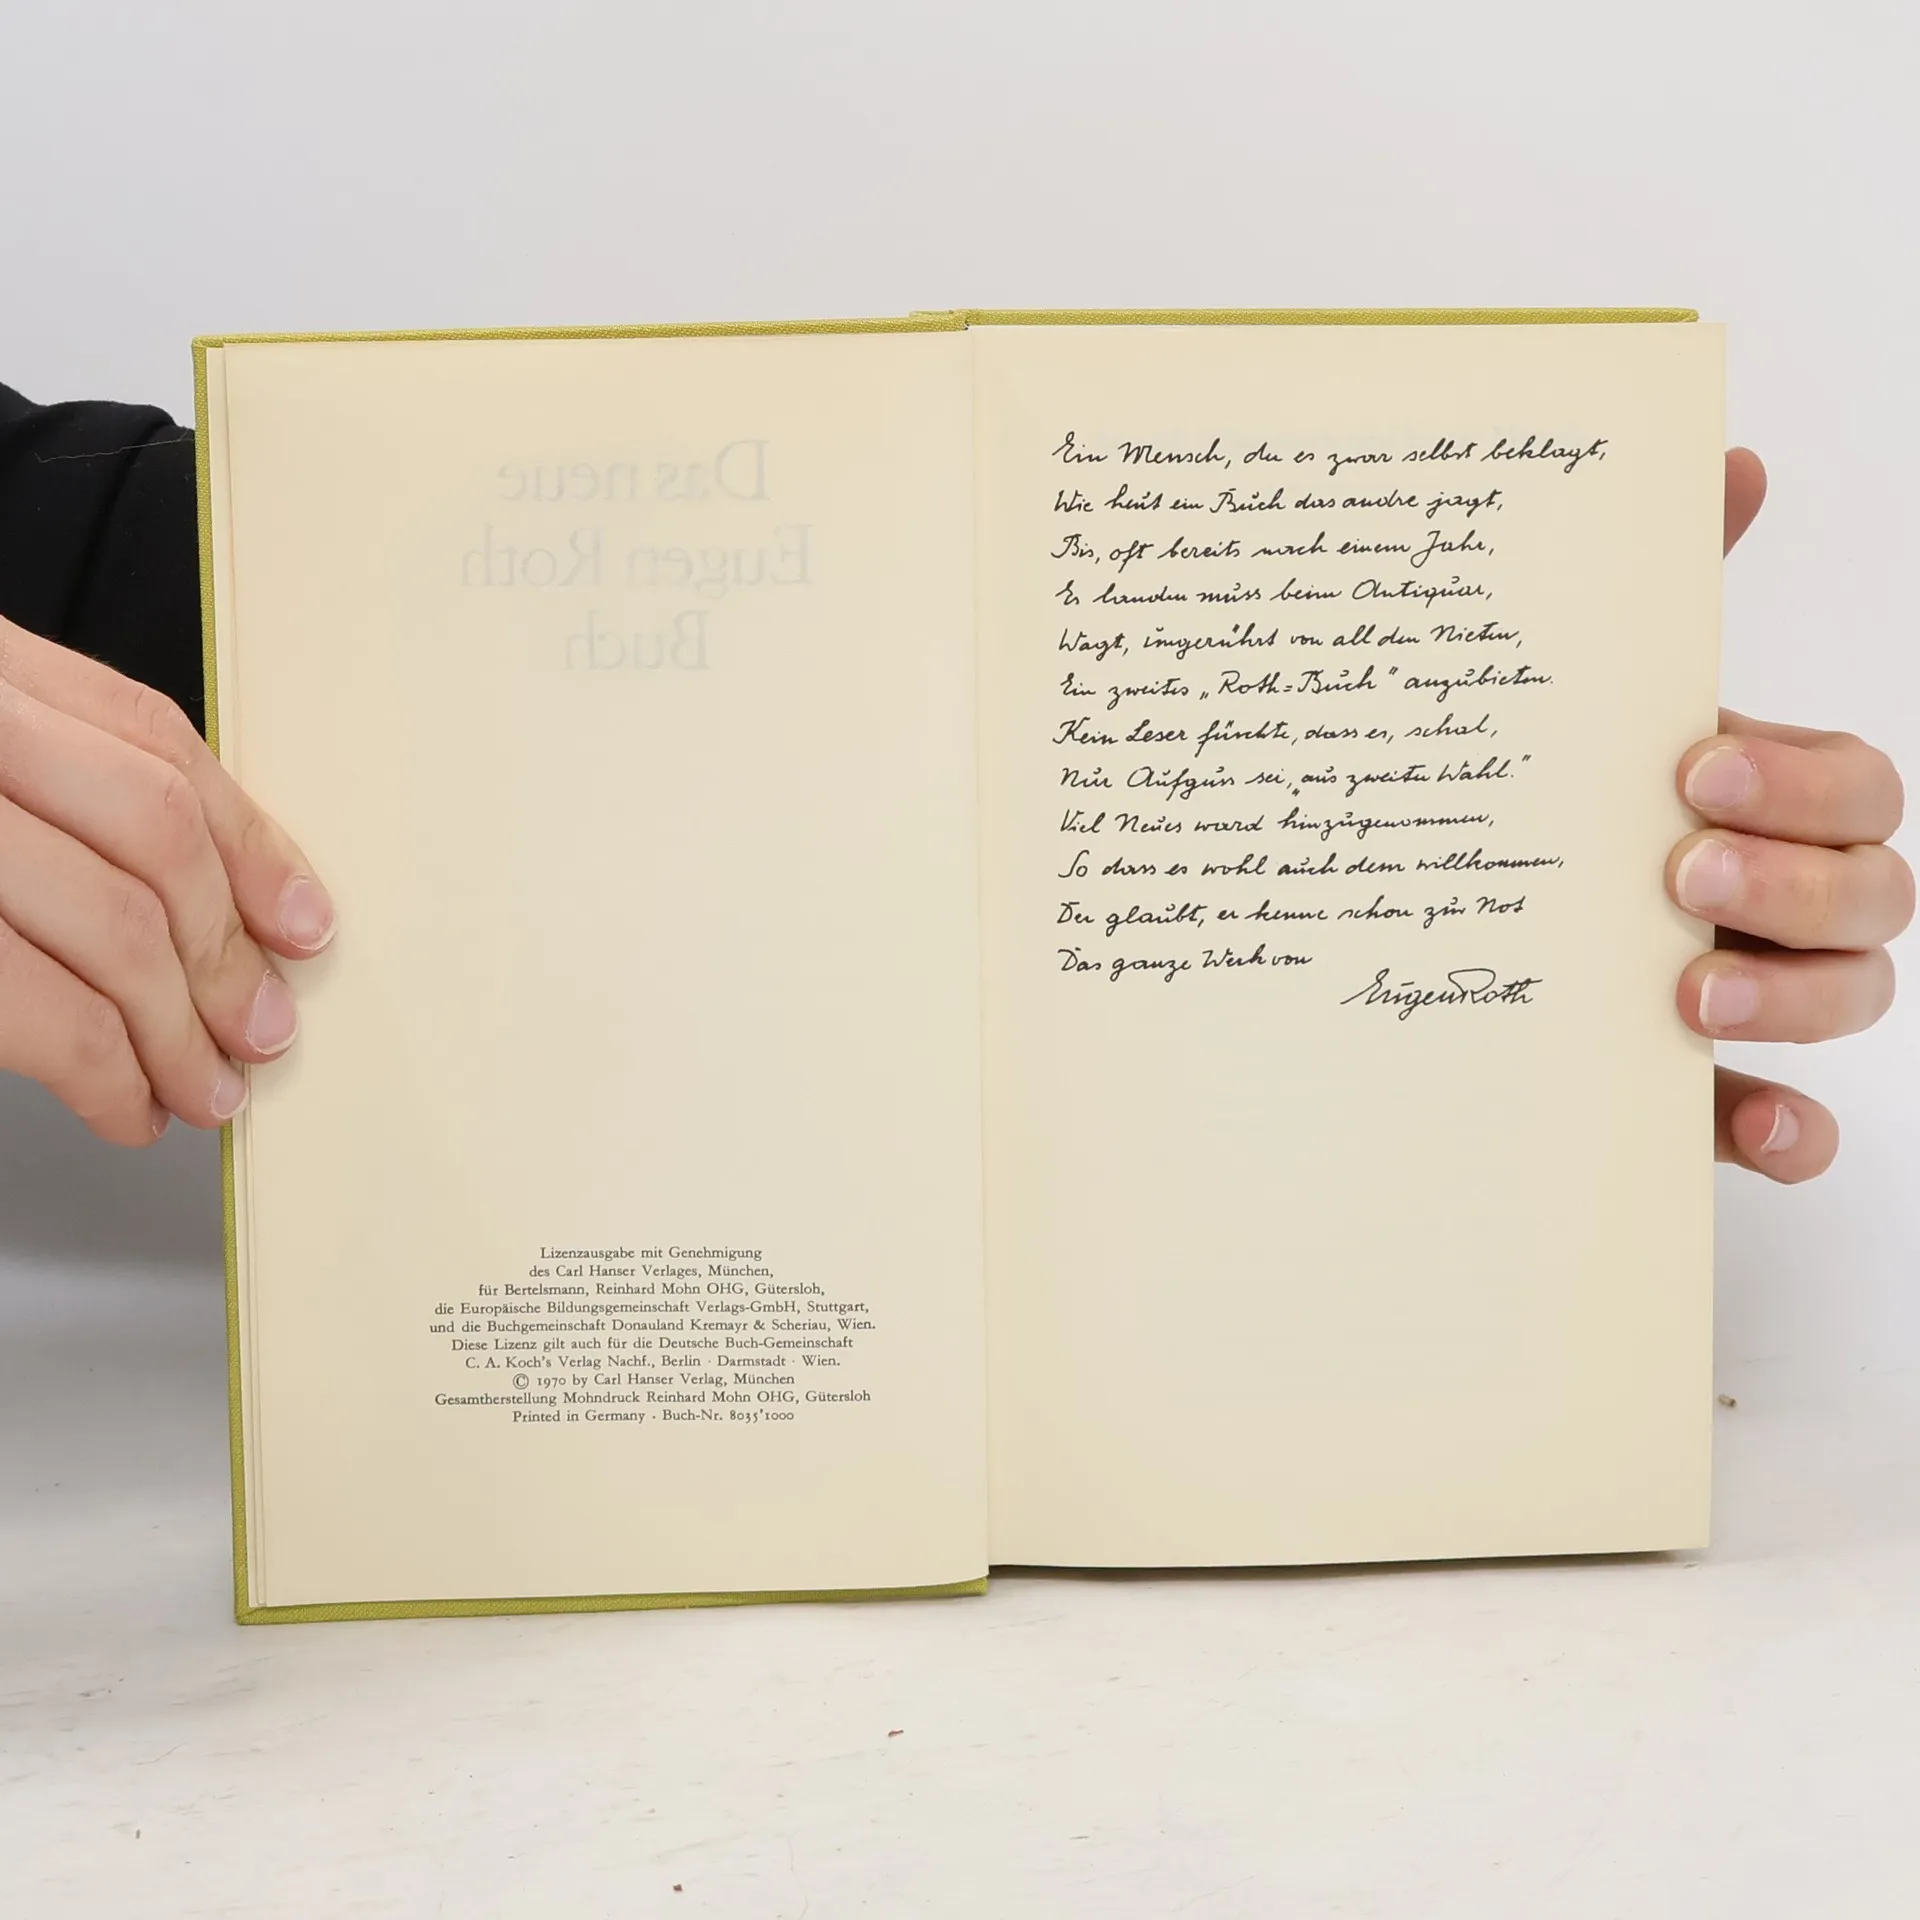 Das neue
Eugen Roth
Buch
Lizenzausgabe mit Genehmigung
des Carl Hanser Verlages, München,
für Bertelsmann, Reinhard Mohn OHG, Gütersloh,
die Europäische Bildungsgemeinschaft Verlags-GmbH, Stuttgart,
und die Buchgemeinschaft Donauland Kremayr & Scheriau, Wien.
Diese Lizenz gilt auch für die Deutsche Buch-Gemeinschaft
C. A. Koch's Verlag Nachf., Berlin · Darmstadt · Wien.
© 1970 by Carl Hanser Verlag, München
Gesamtherstellung Mohndruck Reinhard Mohn OHG, Gütersloh
Printed in Germany · Buch-Nr. 8035'1000
Ein Mensch, der es zwar selbst beklagt,
Wie heut ein Buch das andre jagt,
Bis, oft bereits nach einem Jahr,
Es landen muss beim Antiquar,
Wagt, ungerührt von all den Nieten,
Ein zweites „Roth=Buch" anzubieten.
Kein Leser fürchte, dass es, schal,
Nur Aufguss sei, „aus zweiter Wahl."
Viel Neues ward hinzugenommen,
So dass es wohl auch dem willkommen,
Der glaubt, er kenne schon zur Not
Das ganze Werk von
Eugen Roth